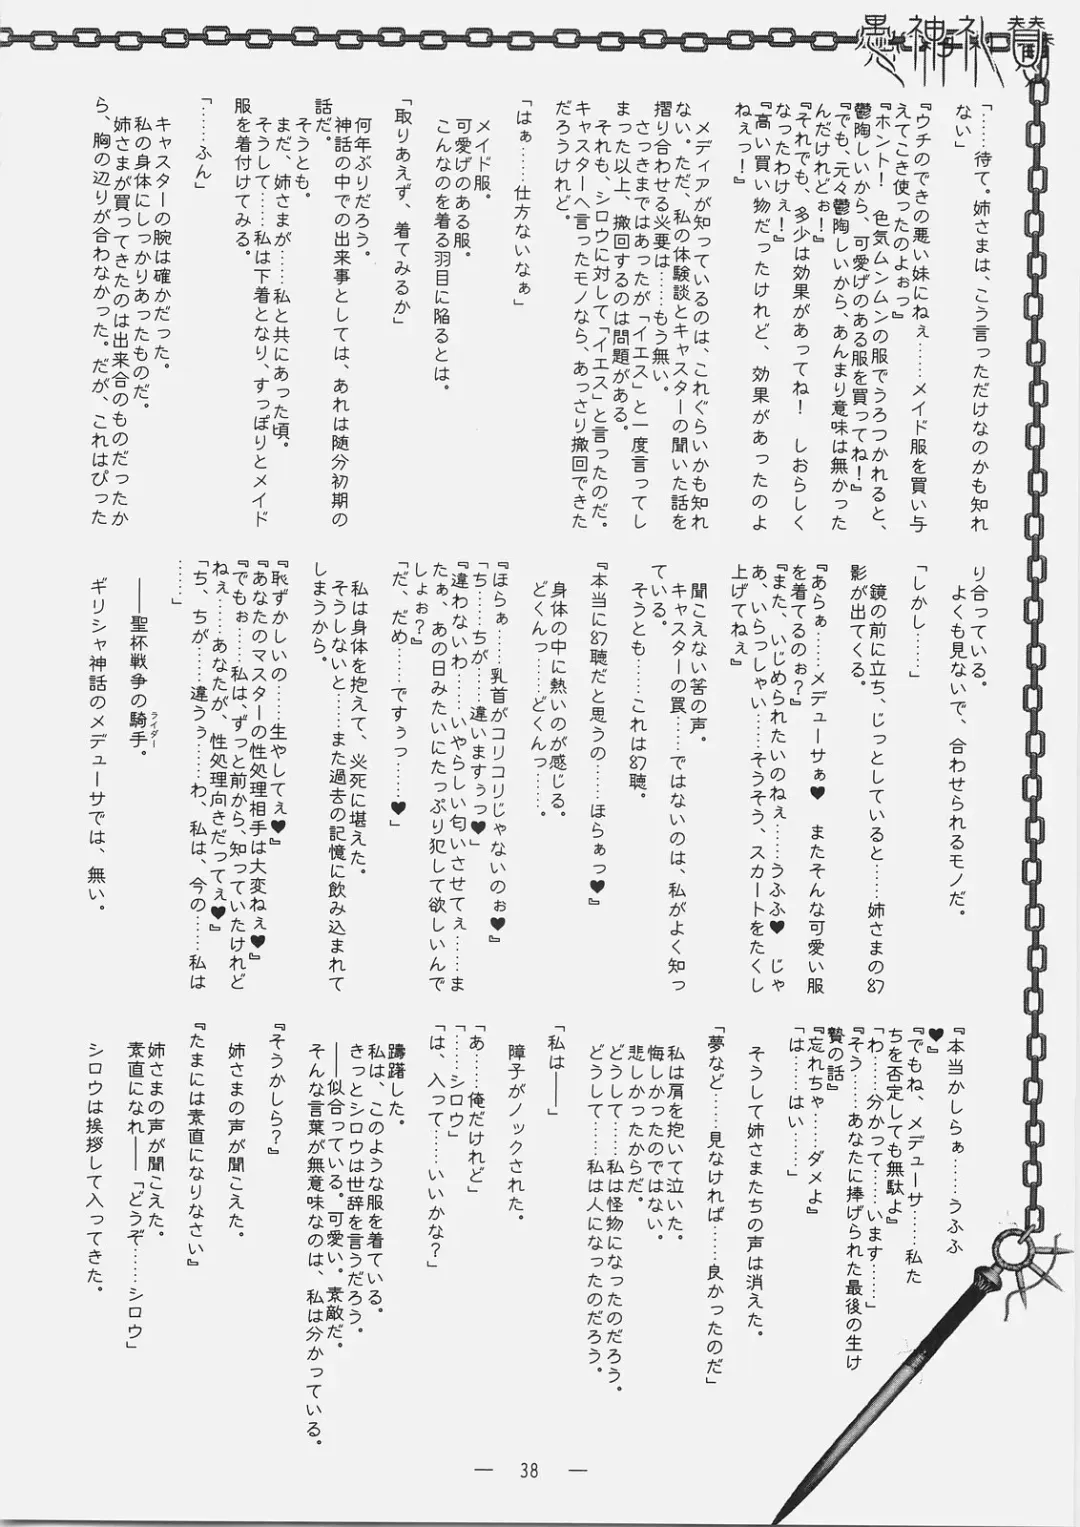 愚神礼賛
「……待て。姉さまは、こう言っただけなのかも知れ
ない」
『ウチのできの悪い妹にねぇ……メイド服を買い与
えてこき使ったのよぉっ』
『ホント！　色気ムンムンの服でうろつかれると、
鬱陶しいから、可愛げのある服を買ってね！』
『でも、元々鬱陶しいから、あんまり意味は無かった
んだけれどぉ！』
『それでも、多少は効果があってね！　しおらしく
なったわけぇ！』
『高い買い物だったけれど、効果があったのよ
ねぇっ！』
メディアが知っているのは、これぐらいかも知れ
ない。ただ、私の体験談とキャスターの聞いた話を
摺り合わせる必要は……もう無い。
さっきまではあったが「イエス」と一度言ってし
まった以上、撤回するのは問題がある。
それも、シロウに対して「イエス」と言ったのだ。
キャスターへ言ったモノなら、あっさり撤回できた
だろうけれど。
「はぁ……仕方ないなぁ」
メイド服。
可愛げのある服。
こんなのを着る羽目に陥るとは。
「取りあえず、着てみるか」
何年ぶりだろう。
神話の中での出来事としては、あれは随分初期の
話だ。
そうとも。
まだ、姉さまが……私と共にあった頃。
そうして……私は下着となり、すっぽりとメイド
服を着付けてみる。
「……ふん」
キャスターの腕は確かだった。
私の身体にしっかりあったものだ。
姉さまが買ってきたのは出来合のものだったか
ら、胸の辺りが合わなかった。だが、これはぴった
り合っている。
よくも見ないで、合わせられるモノだ。
「しかし……」
鏡の前に立ち、じっとしていると……姉さまの幻
影が出てくる。
『あらぁ……メデューサぁ♥　またそんな可愛い服
を着てるのぉ？』
『また、いじめられたいのねぇ……うふふ♥　じゃ
あ、いらっしゃい……そうそう、スカートをたくし
上げてねぇ』
聞こえない筈の声。
キャスターの罠……ではないのは、私がよく知っ
ている。
そうとも……これは幻聴。
『本当に幻聴だと思うの……ほらぁっ♥』
身体の中に熱いのが感じる。
どくんっ……どくんっ……。
『ほらぁ……乳首がコリコリじゃないのぉ♥』
「ち……ちが……違いますぅっ♥」
『違わないわ……いやらしい匂いさせてぇ……ま
たぁ、あの日みたいにたっぷり犯して欲しいんで
しょぉ？』
「だ、だめ……ですぅっ……♥」
私は身体を抱えて、必死に堪えた。
そうしないと……また過去の記憶に飲み込まれて
しまうから。
『恥ずかしいの……生やしてぇ♥』
『あなたのマスターの性処理相手は大変ねぇ♥』
『でもぉ……私は、ずっと前から、知っていたけれど
ねぇ……あなたが、性処理向きだってぇ♥』
「ち、ちが……違うぅ……わ、私は、今の……私は
……」
――聖杯戦争の騎手。
ライダー
ギリシャ神話のメデューサでは、無い。
『本当かしらぁ……うふふ
♥』
『でもね、メデューサ……私た
ちを否定しても無駄よ』
「わ……分かって……います……」
『そう……あなたに捧げられた最後の生け
贄の話』
『忘れちゃ……ダメよ』
「は……はい……」
そうして姉さまたちの声は消えた。
「夢など……見なければ……良かったのだ」
私は肩を抱いて泣いた。
悔しかったのではない。
悲しかったからだ。
どうして……私は怪物になったのだろう。
どうして……私は人になったのだろう。
「私は――」
障子がノックされた。
「あ……俺だけれど」
「……シロウ」
「は、入って……いいかな？」
躊躇した。
私は、このような服を着ている。
きっとシロウは世辞を言うだろう。
――似合っている。可愛い。素敵だ。
そんな言葉が無意味なのは、私は分かっている。
『そうかしら？』
姉さまの声が聞えた。
『たまには素直になりなさい』
姉さまの声が聞こえた。
素直になれ――「どうぞ……シロウ」
シロウは挨拶して入ってきた。
― 38 ―